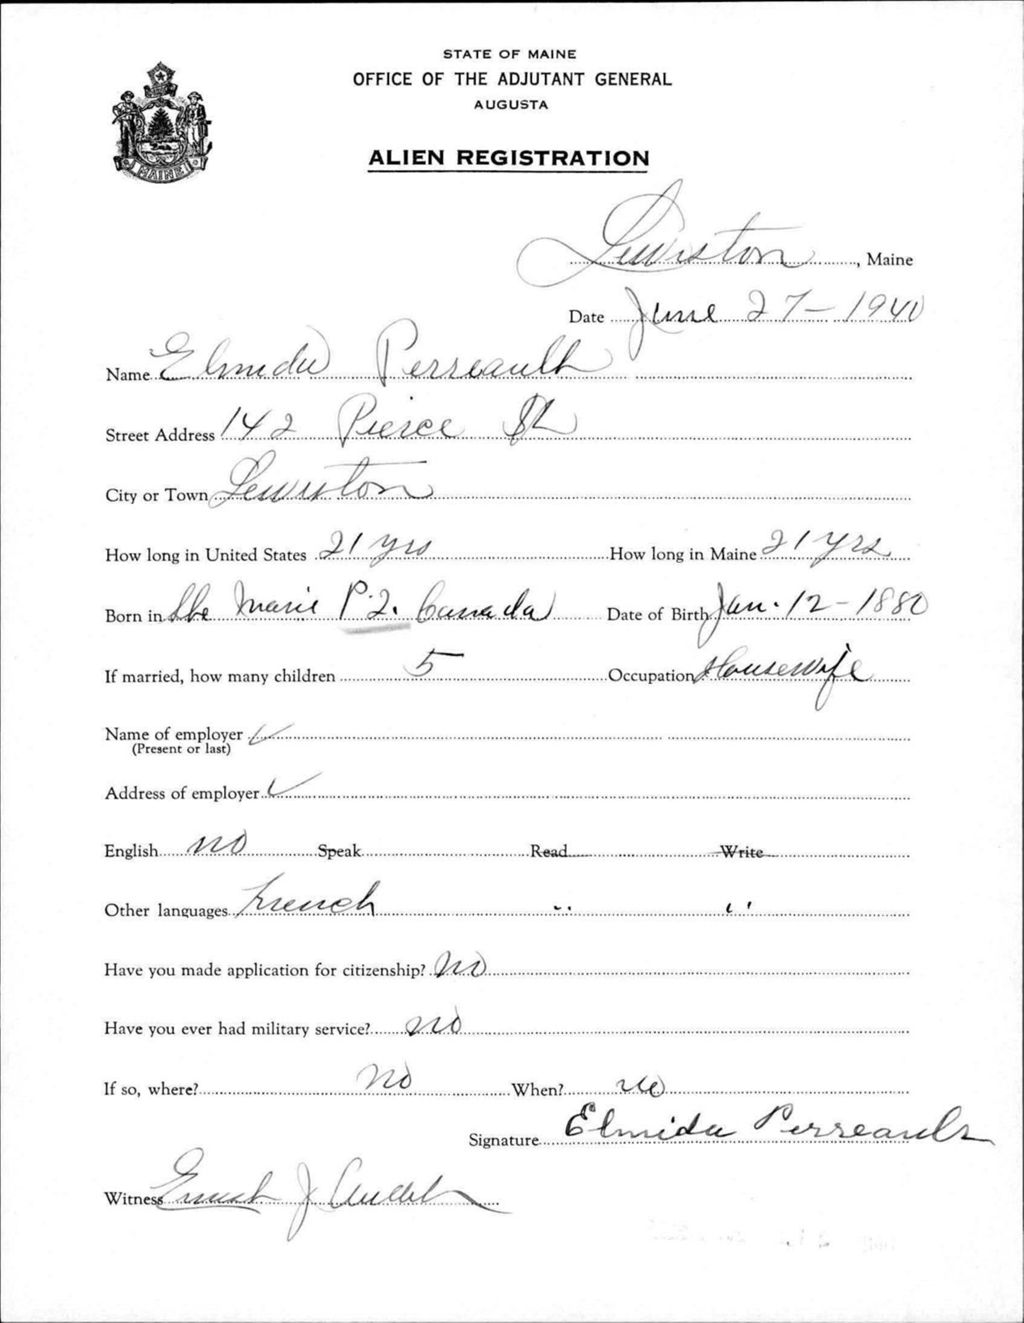 STATE OF MAINE
OFFICE OF THE ADJUTANT GENERAL
AUGUSTA
MAINE
ALIEN REGISTRATION
Lewiston, Maine
Date June 27-1940
Name Elmida Perreault
Street Address 142 Pierce St
City or Town Lewiston
How long in United States 21 yrs How long in Maine 21 yrs
Born in Ste Marie P.Q. Canada Date of Birth Jan. 12-1880
If married, how many children 5 Occupation Housewife
Name of employer ✓
(Present or last)
Address of employer ✓
English no Speak Read Write
Other languages French " "
Have you made application for citizenship? No
Have you ever had military service? no
If so, where? No When? no
Signature Elmida Perreault
Witness J